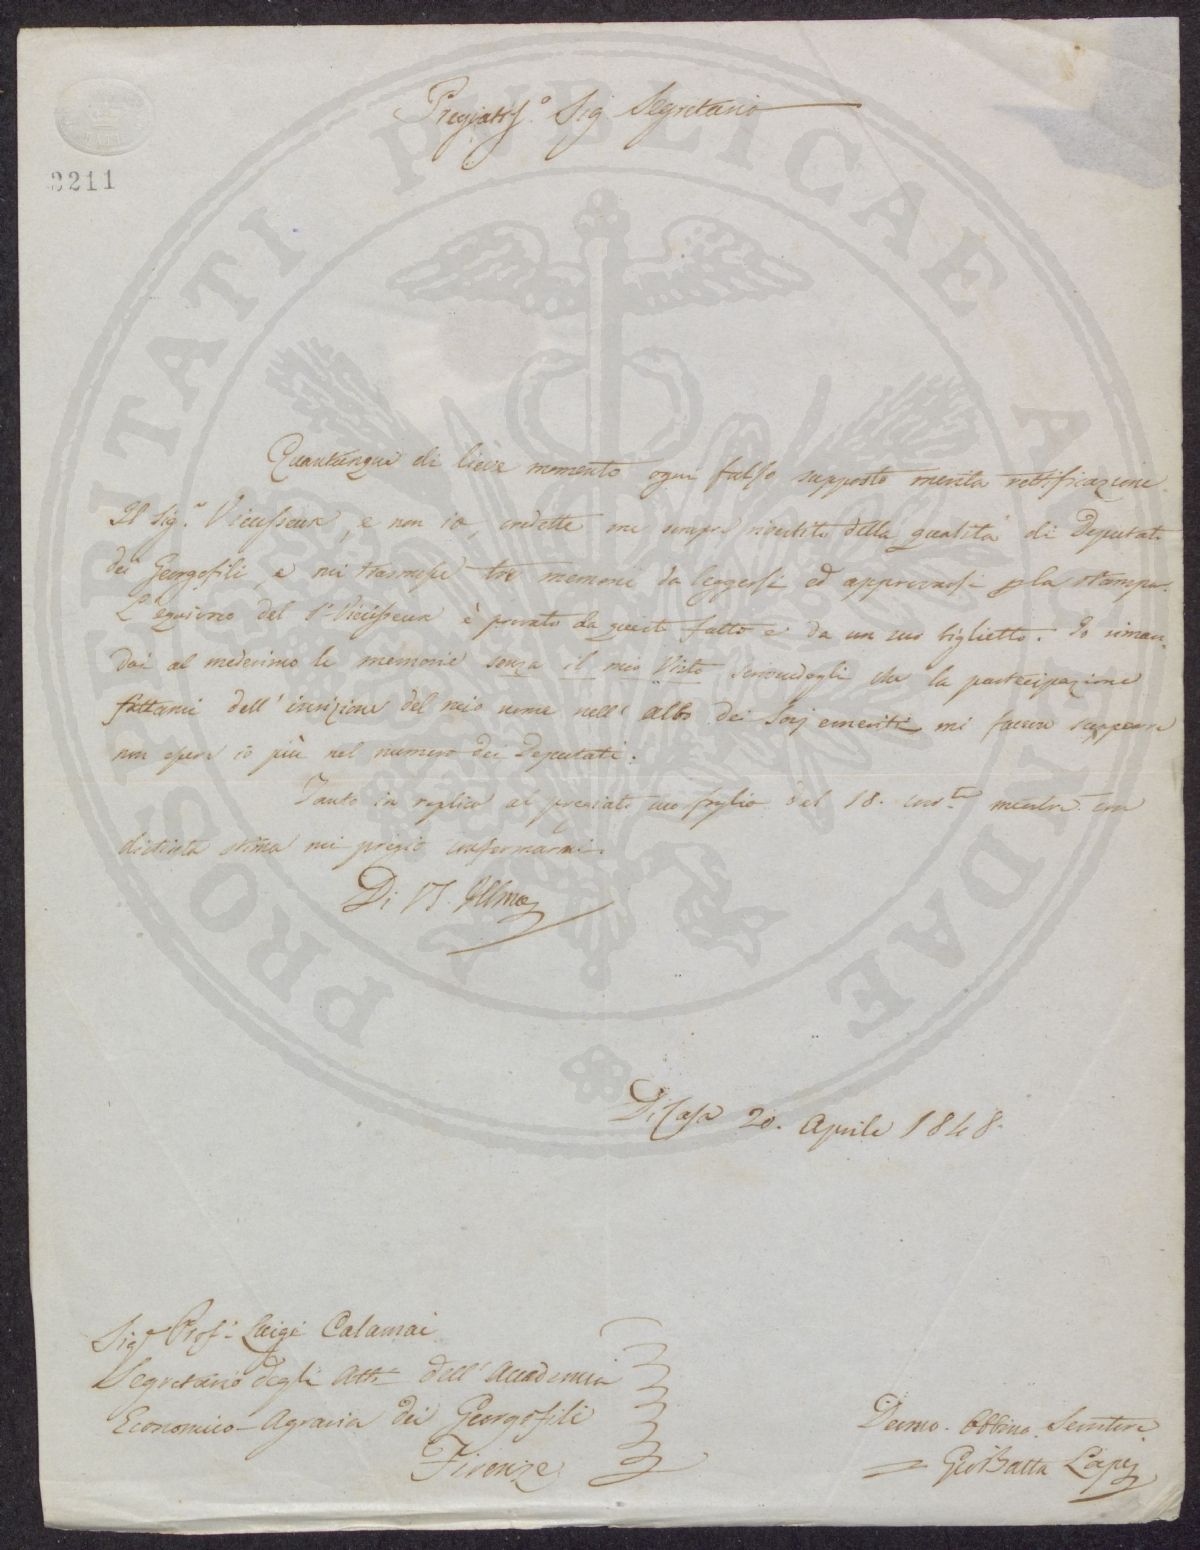 2211
Pregiatiss.º Sig Segretario
Quantunque di lieve momento ogni falso supposto merita rettificazione.
Il Sig.r Vieusseux, e non io, credette me sempre rivestito della qualità di Deputato
dei Georgofili, e mi trasmise tre memorie da leggersi ed approvarsi p la stampa.
L'equivoco del S.r Vieusseux è provato da questo fatto e da un suo biglietto. Io riman-
dai al medesimo le memorie senza il mio Visto scrivendogli che la partecipazione
fattami dell'iscrizione del mio nome nell'albo dei Socj emeriti mi faceva supporre
non esser io più nel numero dei Deputati.
Tanto in replica al pregiato suo foglio del 18. corr.te mentre con
distinta stima mi pregio confermarmi.
Di V.S. Illma
Di Casa 20. Aprile 1848.
Sig.r Prof.r Luigi Calamai
Segretario degli Atti dell'Accademia
Economico-Agraria dei Georgofili
Firenze
Devmo. Obblmo. Servitore
GioBatta Lapi
PROSPERITATI PUBLICAE AUGENDAE